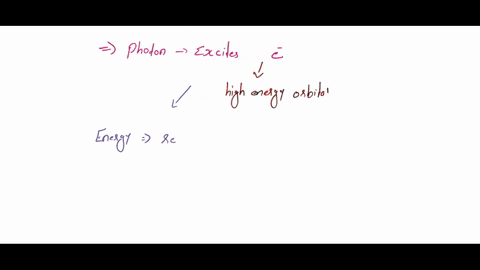 => Photon → Excites ē
high energy orbital
Energy => re